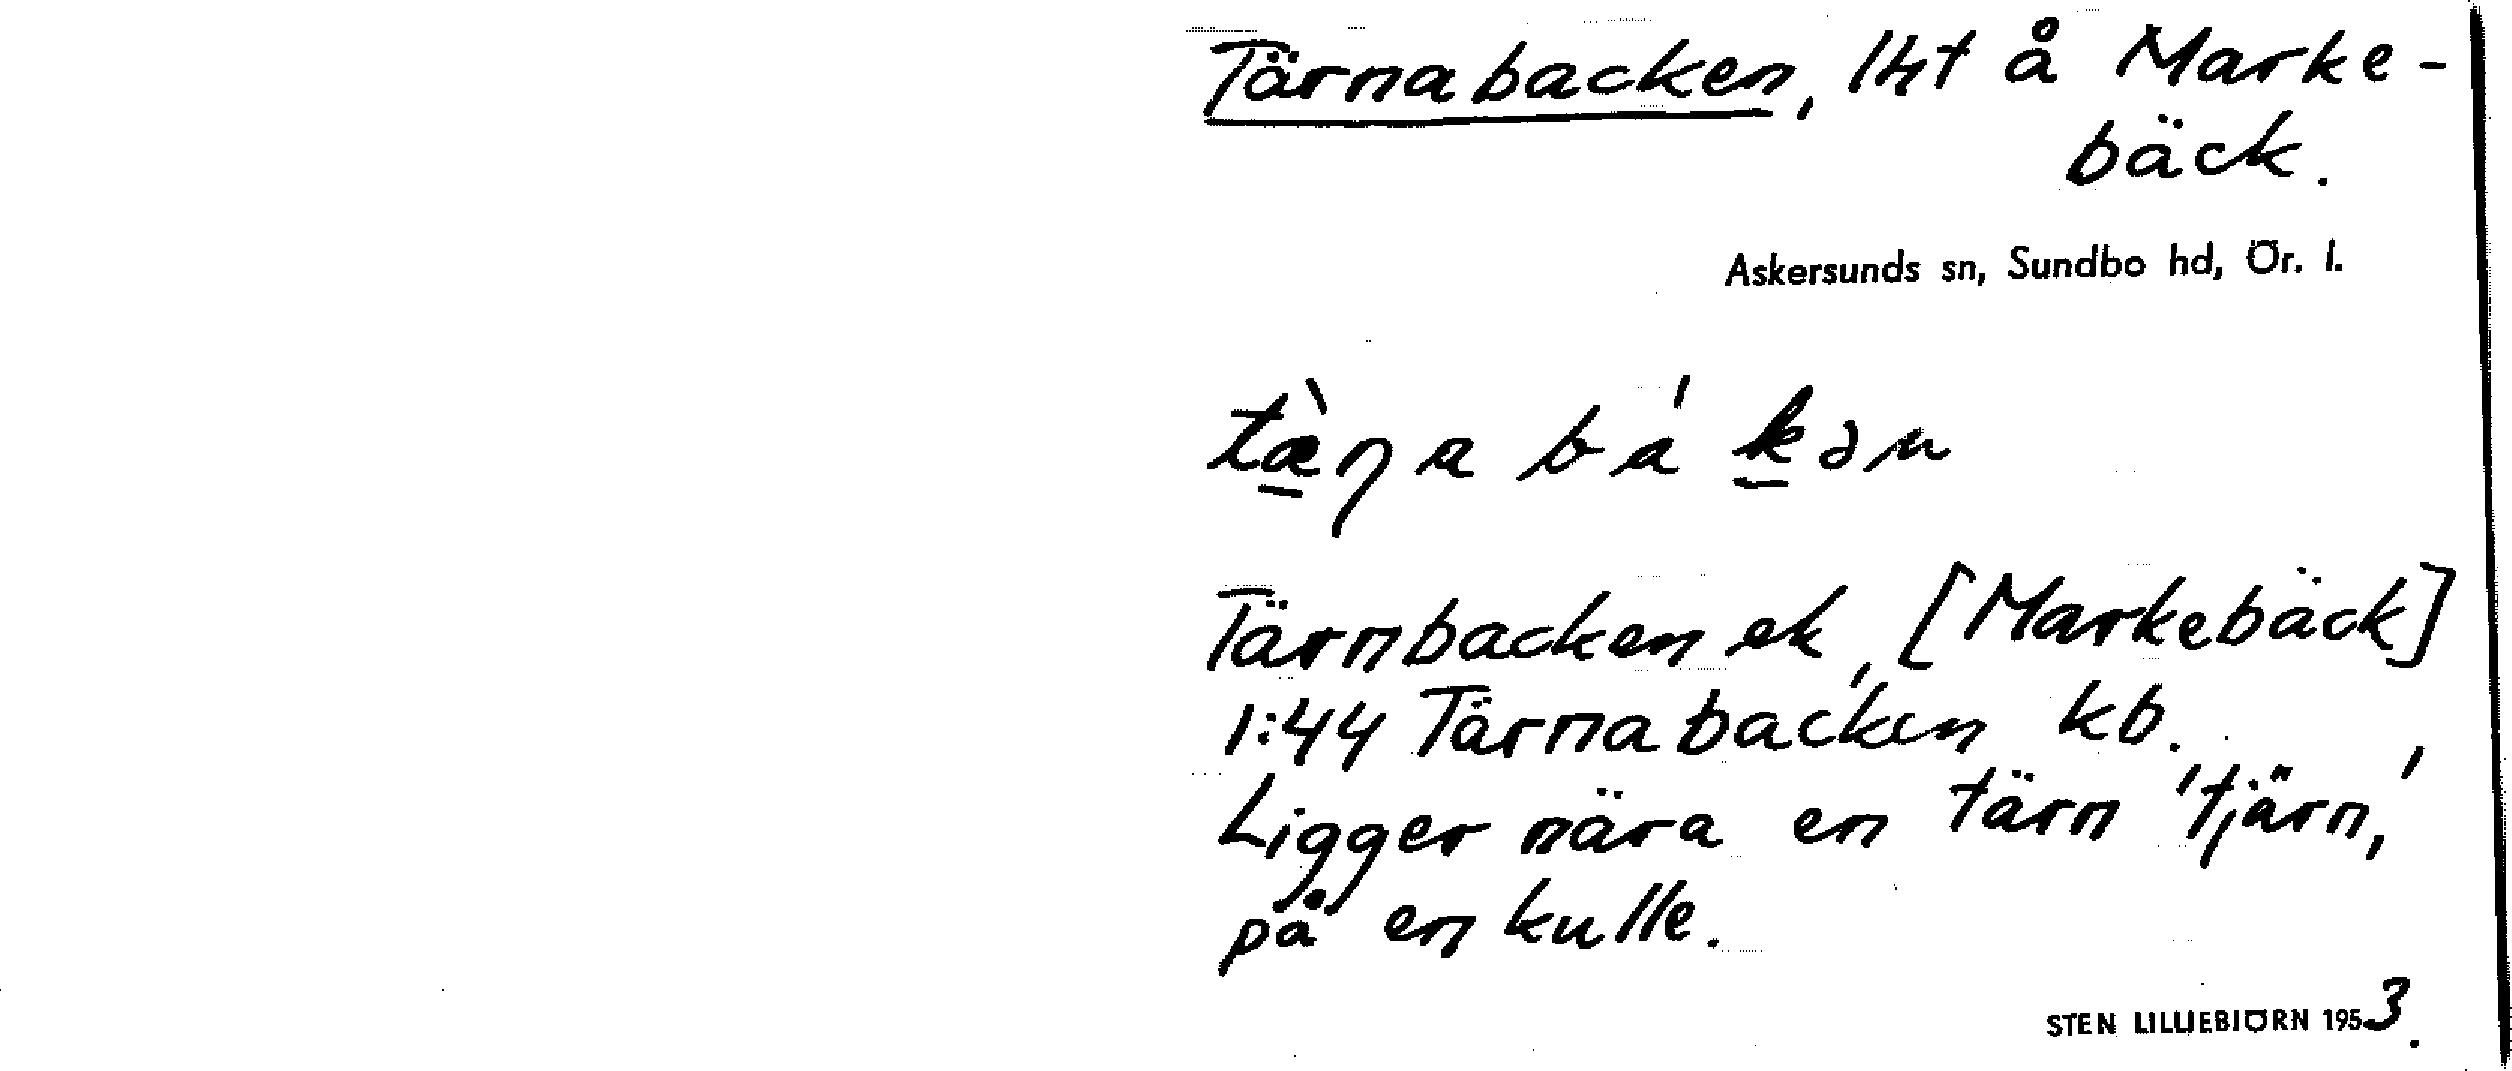 Tärnabacken, lht å Marke-
bäck.
Askersunds sn, Sundbo hd, Ör. l.
tæ̀ɳa bákən
Tärnbacken ek, [Markebäck]
1:44 Tärnabacken kb.
Ligger nära en tärn 'tjärn',
på en kulle.
STEN LILLIEBIÖRN 1953.